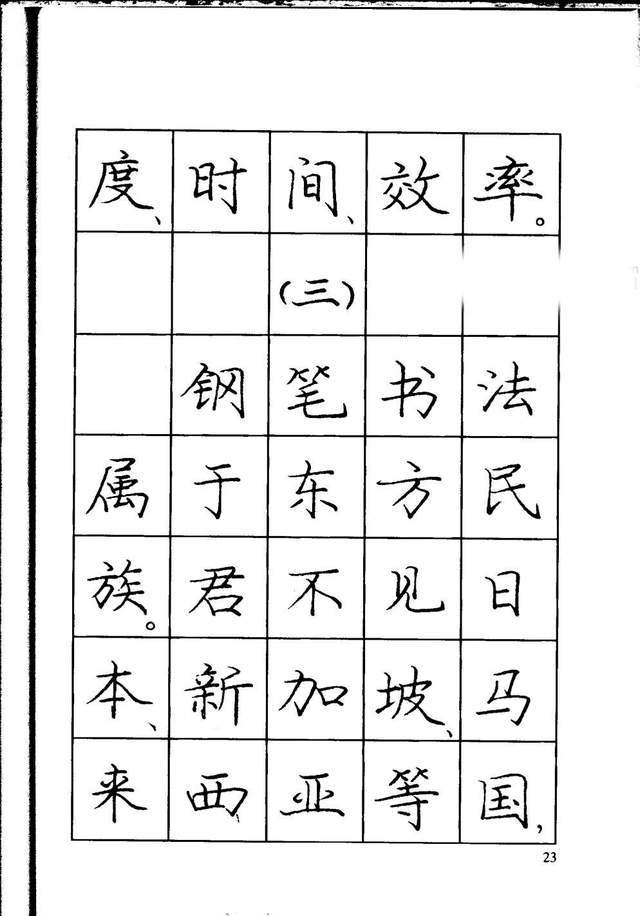 度、时间、效率。
(三)
钢笔书法
属于东方民
族。君不见日
本、新加坡、马
来西亚等国,
23